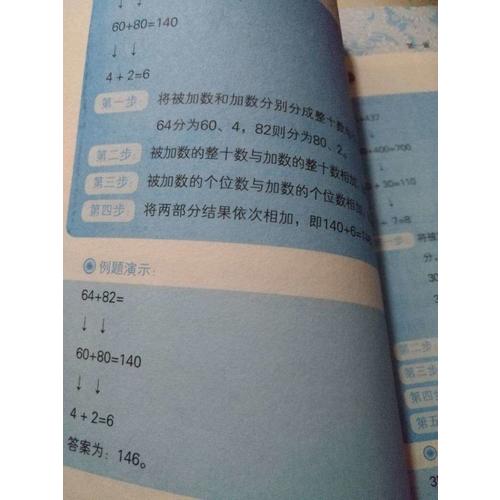 60+80=140
↓ ↓
4+2=6
第一步: 将被加数和加数分别分成整十数
64分为60、4，82则分为80、2。
第二步: 被加数的整十数与加数的整十数相加
第三步: 被加数的个位数与加数的个位数相加
第四步: 将两部分结果依次相加，即140+6=146
例题演示:
64+82=
↓ ↓
60+80=140
↓ ↓
4+2=6
答案为: 146。
+437
+400=700
↓
+30=110
↓
7=8
一步:
将被
分，
30
3
第二步
第三步
第四
第五
例
3